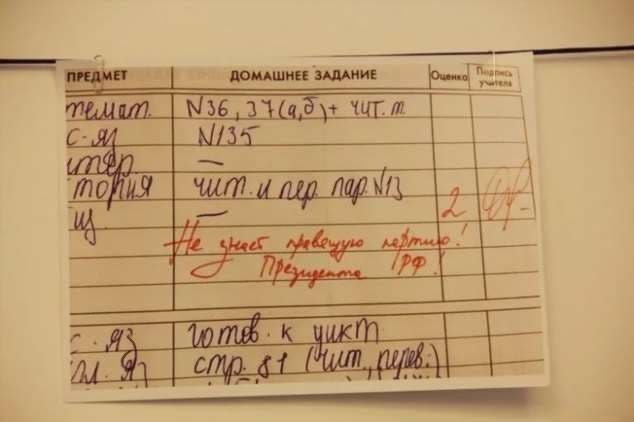 ПРЕДМЕТ ДОМАШНЕЕ ЗАДАНИЕ Оценка Подпись учителя
темат. N36, 37(а,б)+ чит. т.
с-яз N135
тер. —
тория чит. и пер. пар. N13 2
щ. —
Не знает правящую партию!
Президента РФ!
с. яз готов. к дикт
гл. яз стр. 81 (чит., перев.)